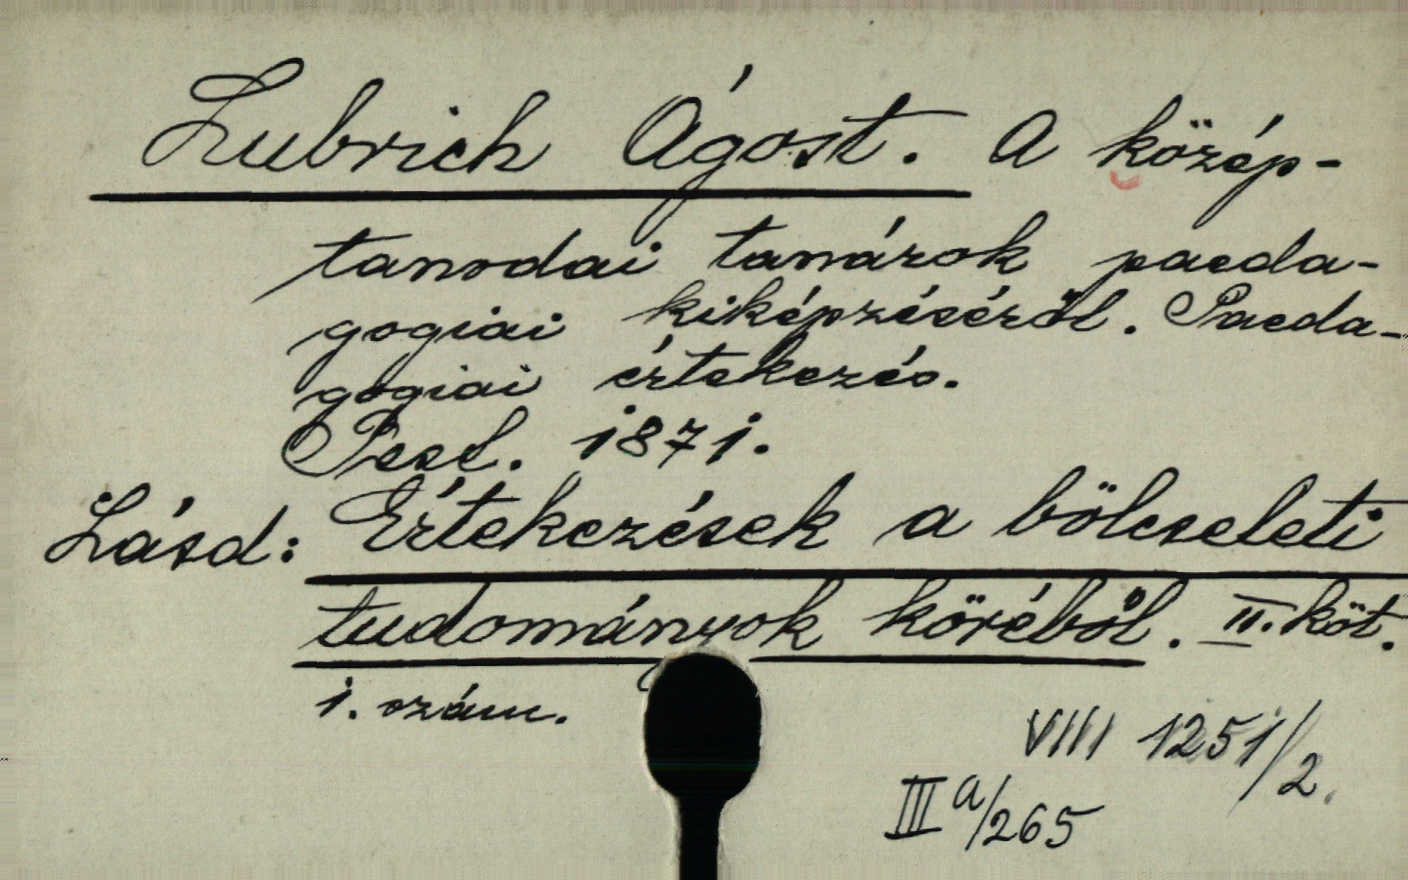 Lubrich Ágost. A közép-
tanodai tanárok paeda-
gogiai kiképzéséről. Paeda-
gogiai értekezés.
Pest. 1871.
Lásd: Értekezések a bölcseleti
tudományok köréből. II. köt.
1. szám.
VIII 1251/2.
III a/265